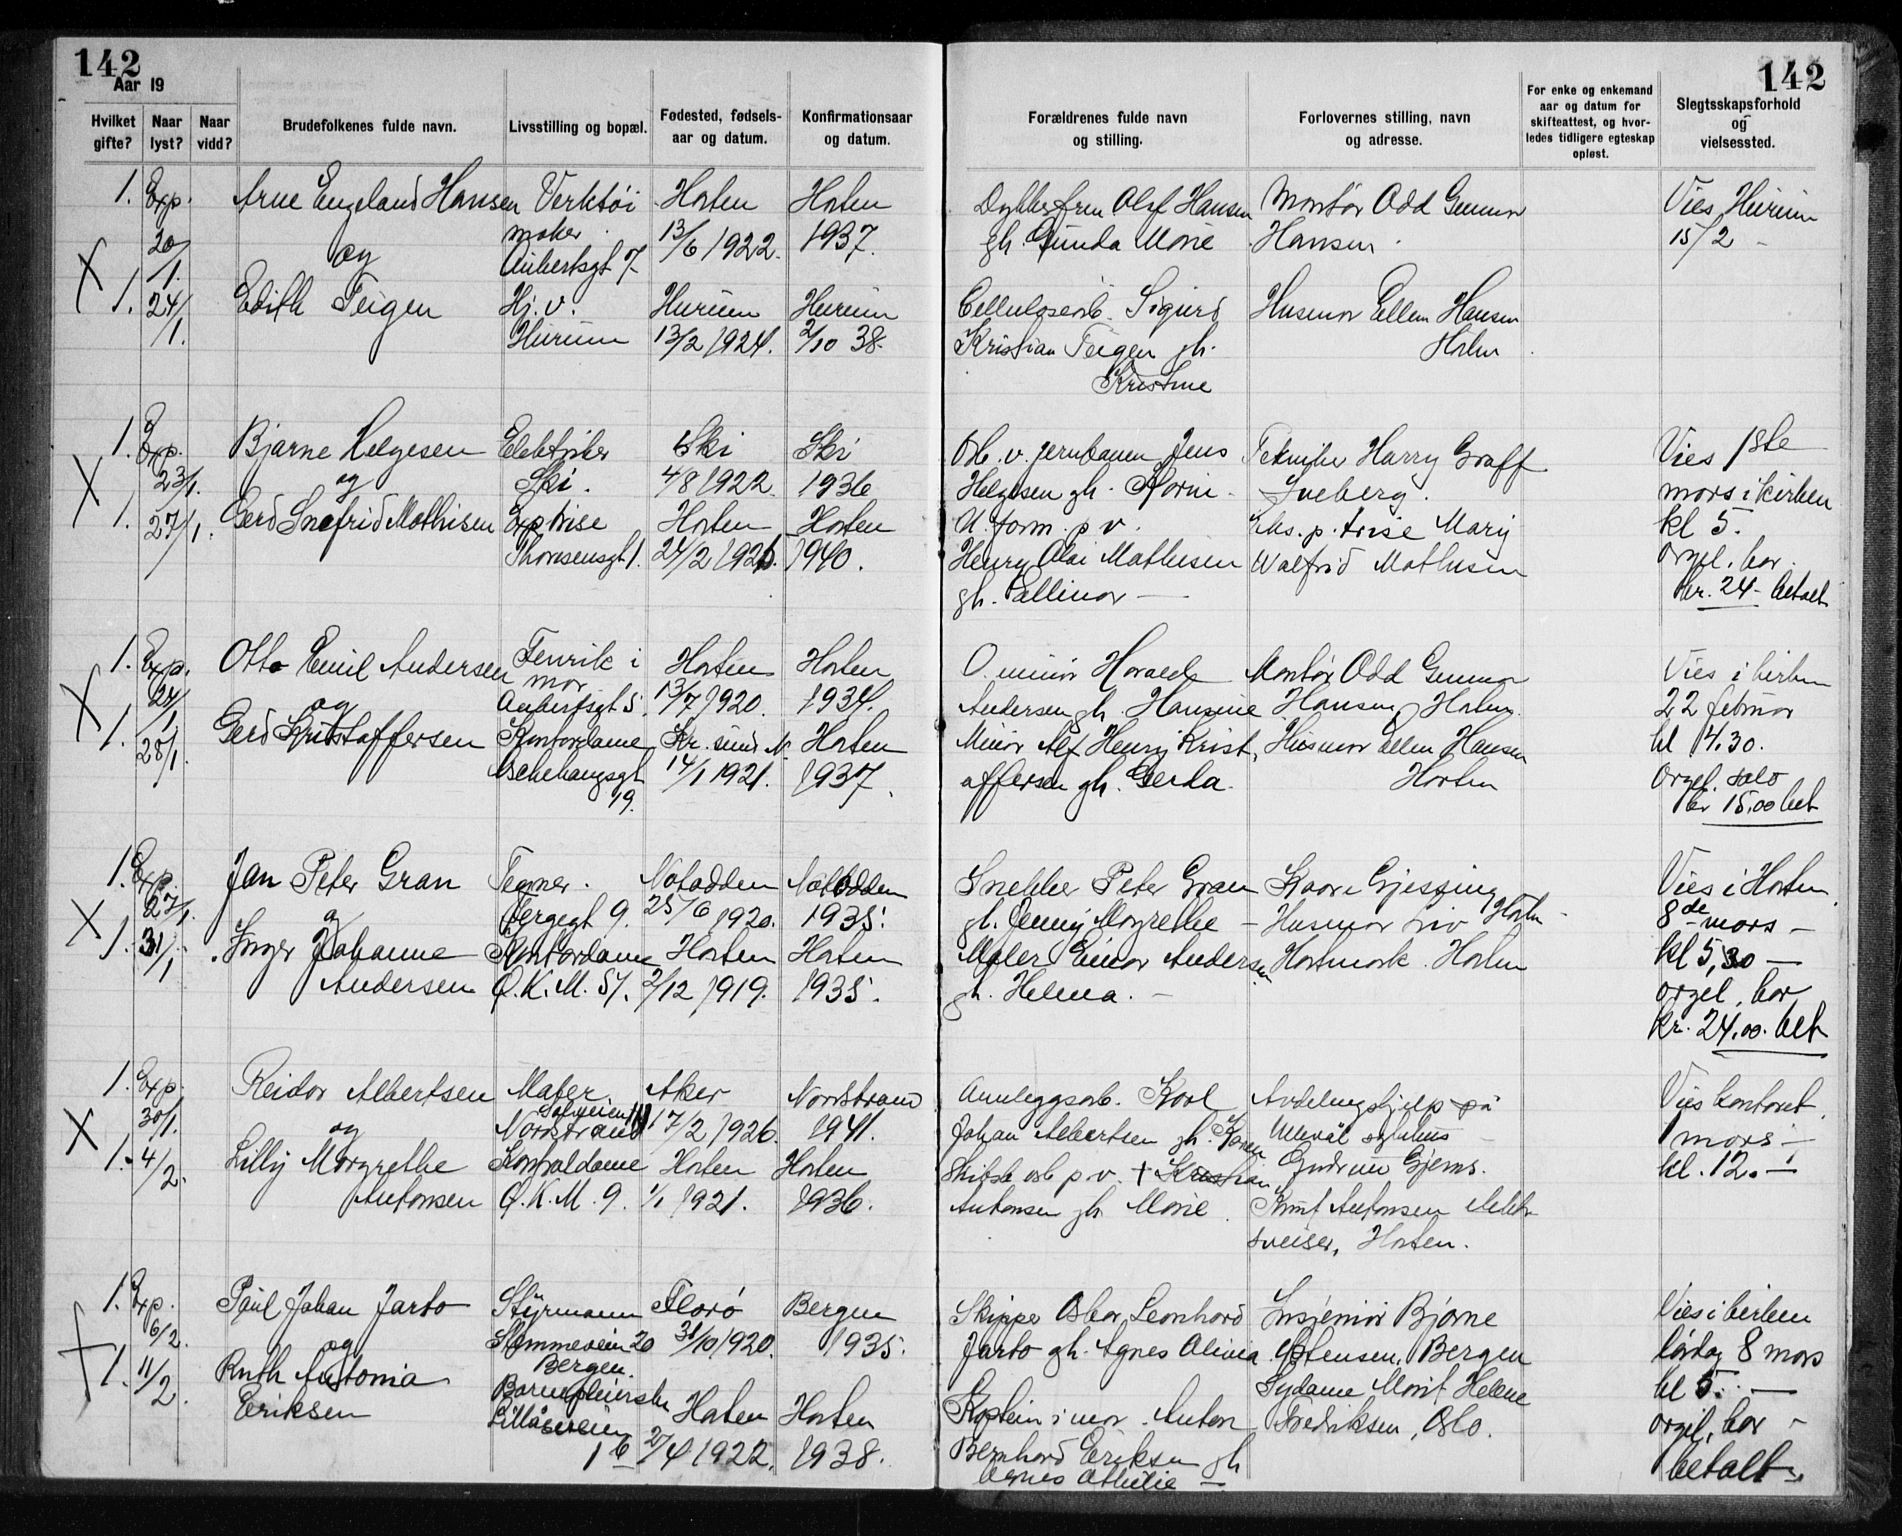 142
Aar 19
Hvilket gifte?
Naar lyst?
Naar vidd?
Brudefolkenes fulde navn.
Livsstilling og bopæl.
Fødested, fødsels-
aar og datum.
Konfirmationsaar
og datum.
142
Forældrenes fulde navn
og stilling.
Forlovernes stilling, navn
og adresse.
For enke og enkemand
aar og datum for
skifteattest, og hvor-
ledes tidligere egteskap
opløst.
Slegtsskapsforhold
og
vielsessted.
1. Exp. Arne Engeland Hansen Verktøi Horten Horten
20/1. og maker. 13/6 1922. 1937.
X Aubertsgt 7
1. 24/1. Edith Teigen Hj. v. Hurum Hurum
Hurum 13/2 1924. 2/10 38.
Olaf Hansen Montør Odd Gunnar Vies Hurum
gh. Gunda Marie Hansen. 15/2 -
Cellulosearb. Sigurd Husmor Ellen Hansen
Kristian Teigen gh. Horten
Kristine
1. Exp. Bjarne Helgesen Elektriker Ski Ski
X 23/1. og Ski. 4/8 1922. 1936
1. 27/1. Gerd Snefrid Mathisen Exptrise Horten Horten
Thomsensgt 1. 24/2 1926. 1940.
v. jernbanen Jens Tekniker Harry Graff Vies 1ste
Helgesen gh. Karin - Sveberg. mars i kirken
U. form. p v. Eks. p. trise Mary kl 5.
Henry Olai Mathisen Walfrid Mathisen orgel, bar.
gh. Ellinor - kr. 24 - betalt
1. Exp. Otto Emil Andersen Fenrik i Horten Horten
X 24/1 og mar 13/7 1920. 1934.
Aubertsgt 5.
1. 28/1. Gerd Kristaffersen Kontordame Kr. sund N. Horten
Aschehougsgt 14/1 1921. 1937.
19.
U. minør Harald Montør Odd Gunnar Vies i kirken
Andersen gh. Hansine Hansen, Horten. 22 februar
Minør Alf Henry Krist, Husmor Ellen Hansen kl 4,30.
affersen gh. Gerda. Horten Orgel. solo
kr 15,00 bet
1. Exp. Jan Peter Gran Tegner. Notodden Notodden
X 27/1. og gt 9. 25/6 1920. 1935.
1. 31/1 Inger Johanne Kontordame Horten Horten
Andersen Q.K.M. 57. 2/12 1919. 1935.
Snekker Peter Gran Kaare Gjessing Horten Vies i Horten
gh. Jenny Margrethe - Husmor Liv 8de mars -
Maler Einar Andersen Hortmark. Horten kl 5,30 -
gh. Helena. - orgel, bar
kr. 24,00. bet
1. Exp. Reidar Albertsen Maler. Aker Nordstrand
X 30/1. og Nordstrand 17/2 1926. 1941.
1. 4/2. Lilly Margrethe Kontoldame Horten Horten
Antonsen Q.K.M. 9. 1/1 1921. 1936.
Anleggsarb. Karl Avdelingshjelp på Vies kontoret.
Johan Albertsen gh. Karen Ullevål sykehus - 1 mars -
Skibsb arb p.v. + Kristian Gudrun Gjems. kl. 12. -
Antonsen gh. Marie. Knut Antonsen elektr
sveiser, Horten.
1. Exp. Paul Johan Jarto Styrmann Florø Bergen
6/2. og Stemmeveien 20 31/10 1920. 1935.
Bergen.
X 1. 11/2. Ruth Antonia Barnepleierske Horten Horten
Eriksen Lillåsveien
16 27/4 1922. 1938.
Skipper Oskar Leonhard Insjeniør Bjarne Vies i kirken
Jarto gh. Agnes Olivia Østensen, Bergen lørdag 8 mars
Sydame Marit Helene kl 5. -
Kaptein i mar. Anton Fredriksen, Oslo. orgel, bar -
Bernhard Eriksen gh betalt.
Agnes Othilie -